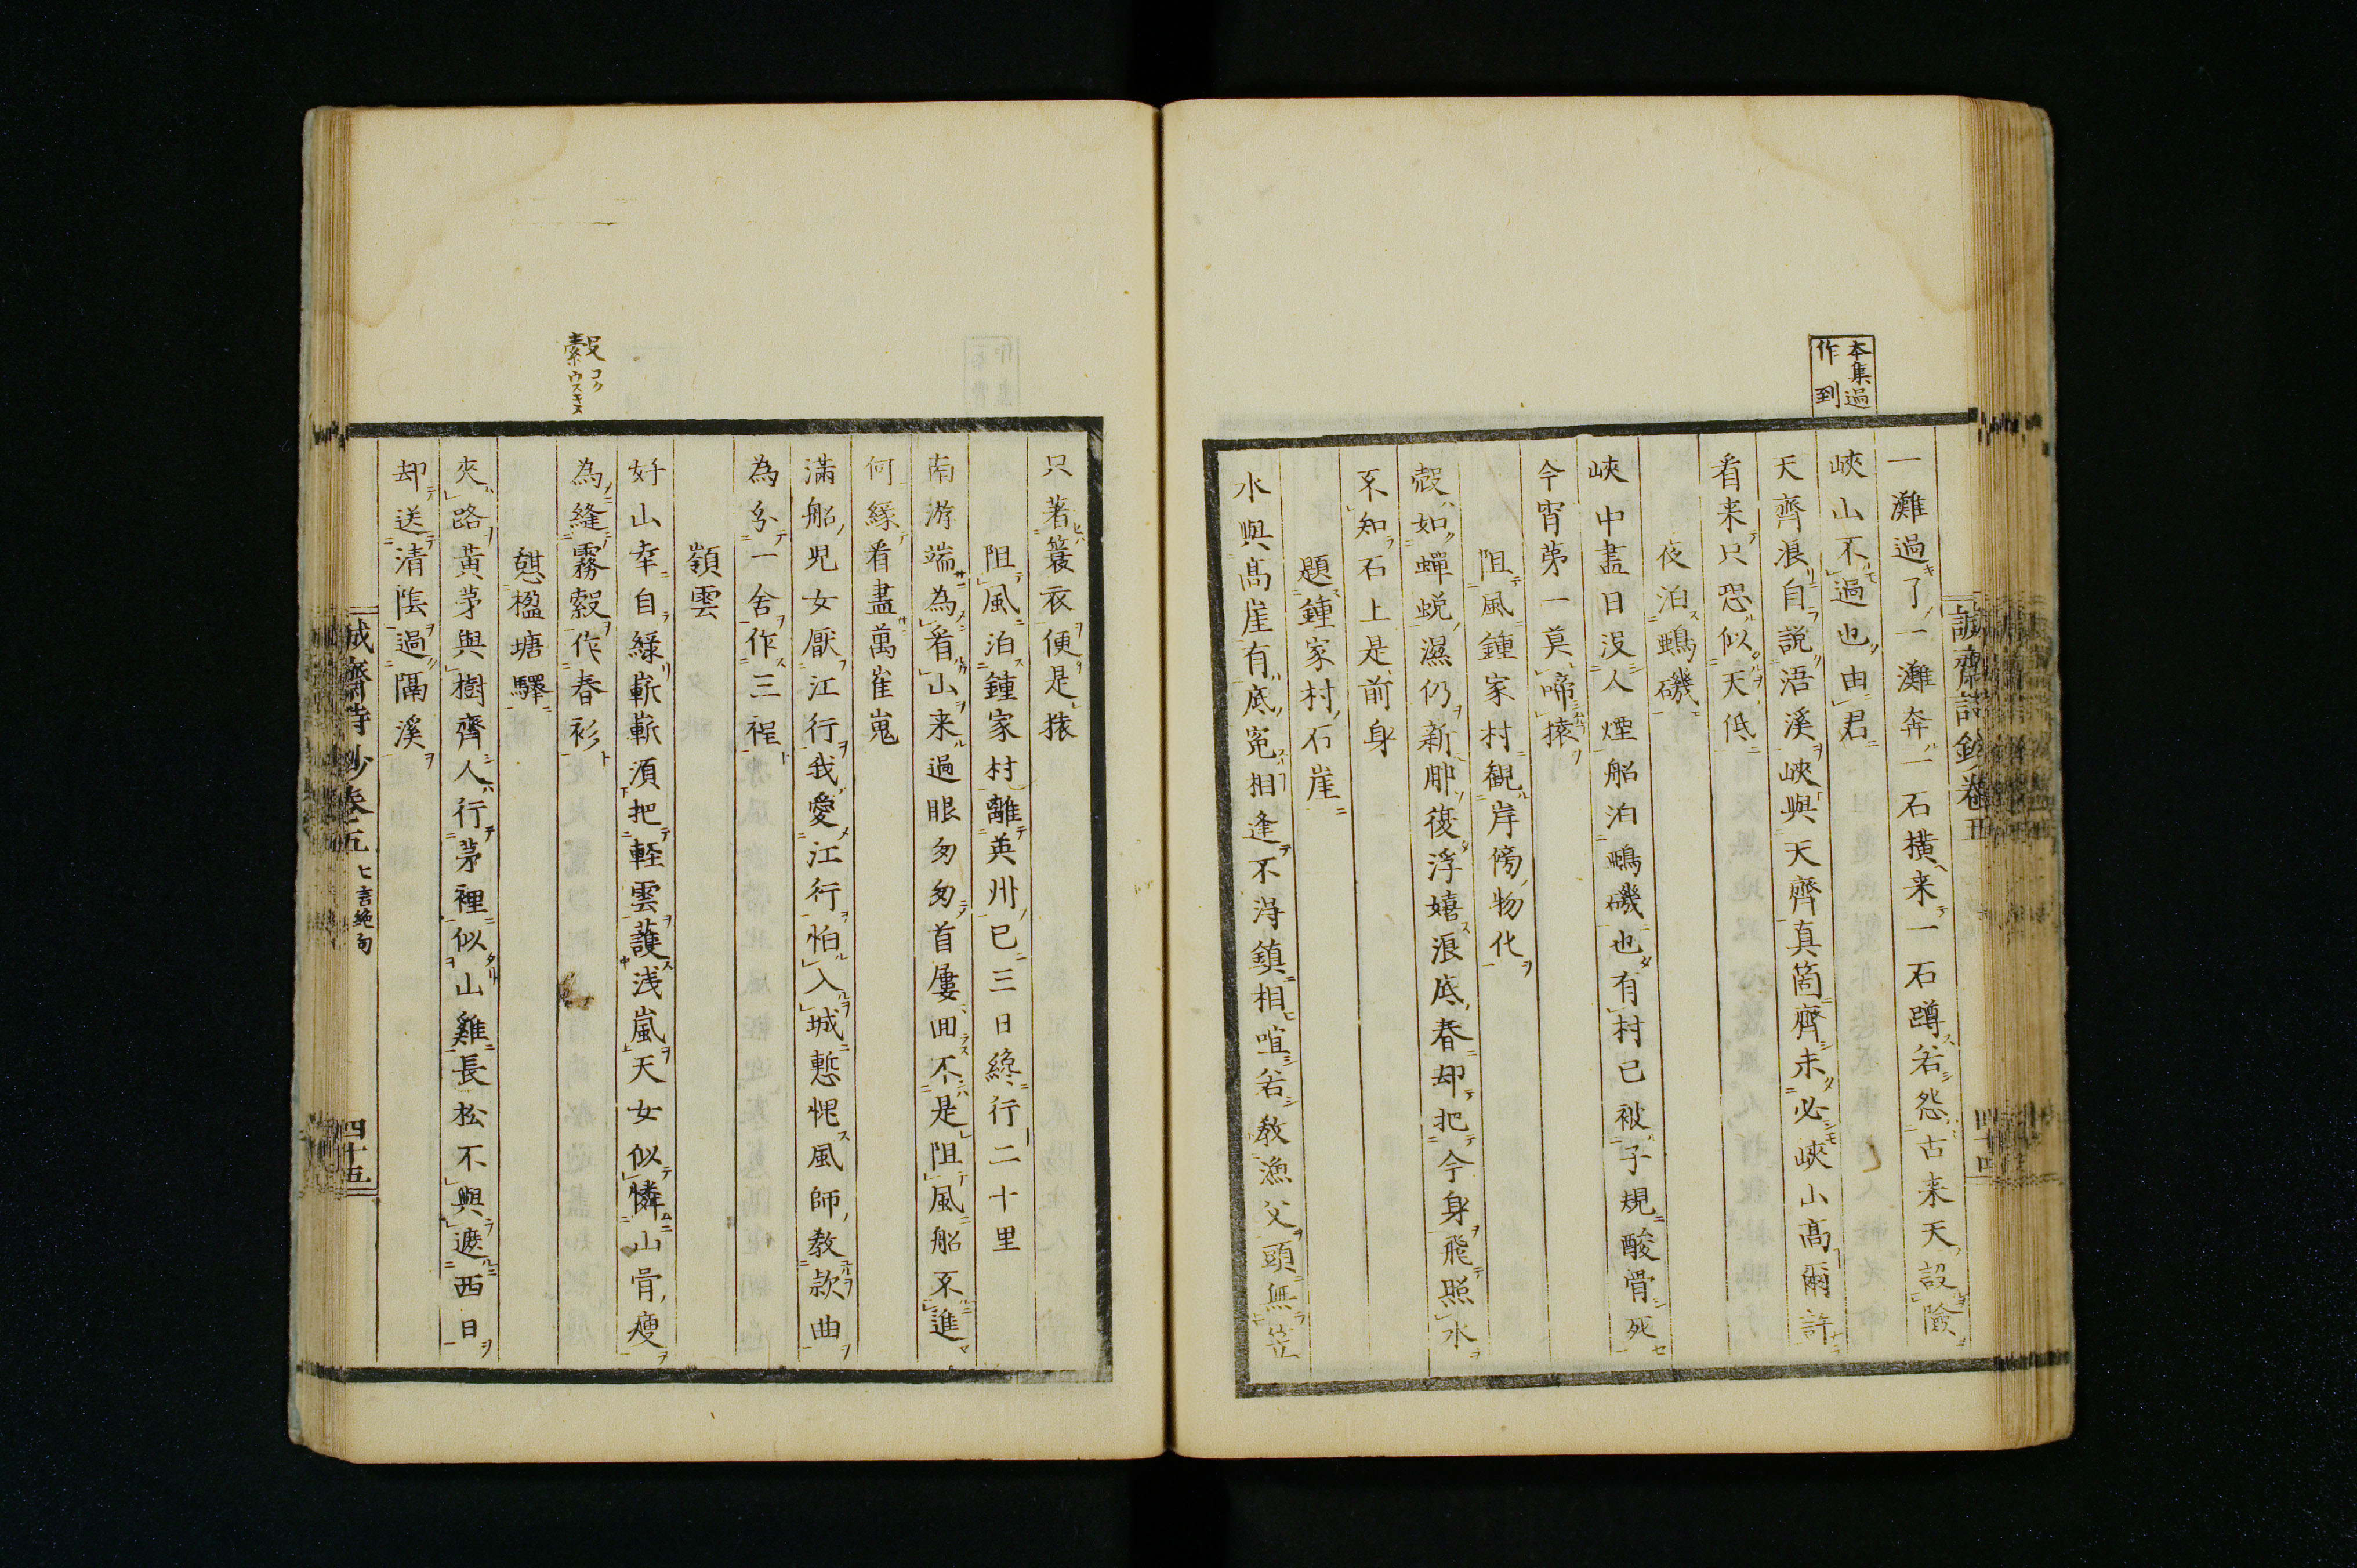 本集過
作到
誠齋詩鈔卷五
四十四
一灘過了一灘奔一石橫来一石蹲若怨古来天設險
峽山不過也由君
天齊浪自説浯溪峽與天齊真箇齊未必峽山高爾許
看来只恐似天低
夜泊鴨磯
峽中盡日没人煙船泊鴨磯也有村已被子規酸骨死
今宵第一莫啼猿
阻風鍾家村觀岸傍物化
殼如蟬蛻濕仍新那復浮嬉浪底春却把今身飛照水
不知石上是前身
題鍾家村石崖
水與高崖有底冤相逢不淂鎮相喧若教漁父頭無笠
只著簑衣便是猿
阻風泊鍾家村離英州已三日纔行二十里
南游端為看山来過眼匆匆首屢囬不是阻風船不進
何緣看盡萬崔嵬
滿船兒女厭江行我愛江行怕入城慙愧風師教款曲
為分一舍作三程
嶺雲
好山幸自綠嶄嶄湏把輕雲護浅嵐天女似憐山骨瘦
為縫霧縠作春衫
憇楹塘驛
夾路黃茅與樹齊人行茅裡似山雞長松不與遮西日
却送清陰過隔溪
縠コク
素ウスキヌ
誠齋詩鈔卷五
七言絶句
四十五